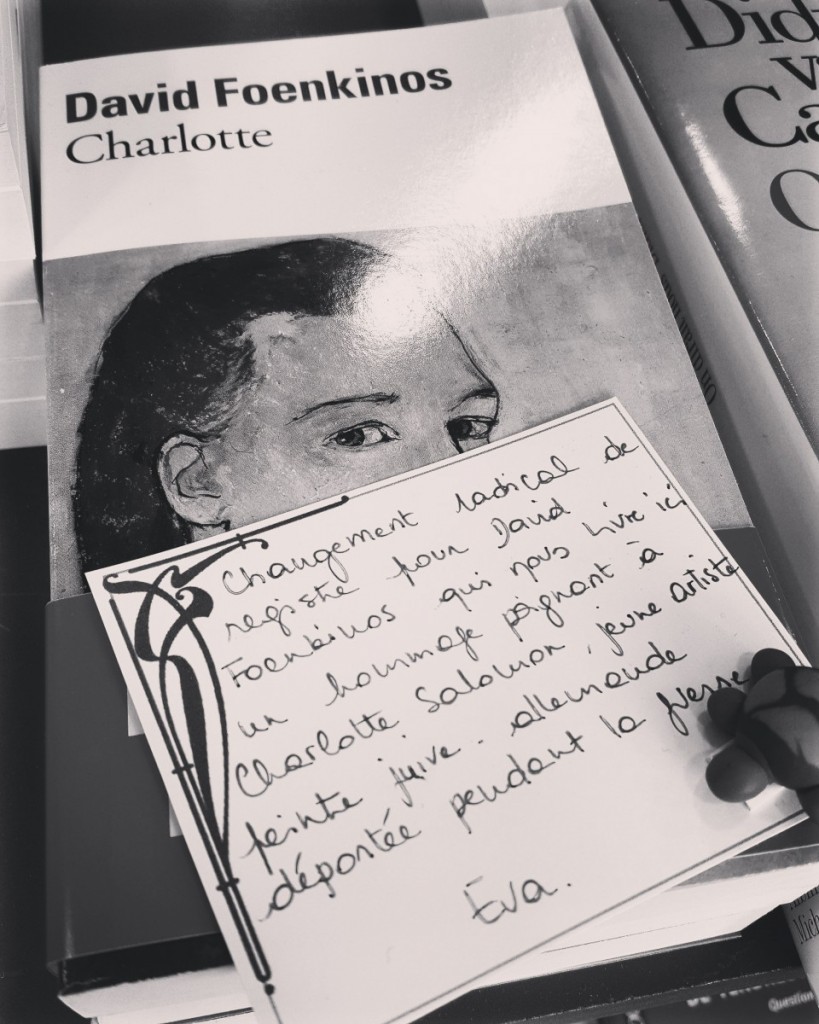 David Foenkinos
Charlotte
Changement radical de
registre pour David
Foenkinos qui nous livre ici
un hommage poignant à
Charlotte Salomon, jeune artiste
peintre juive-allemande
déportée pendant la guerre
Eva.
Did
Ca
Question